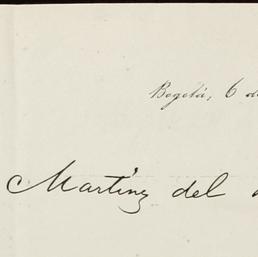 Bogotá, 6 de
Martínz del